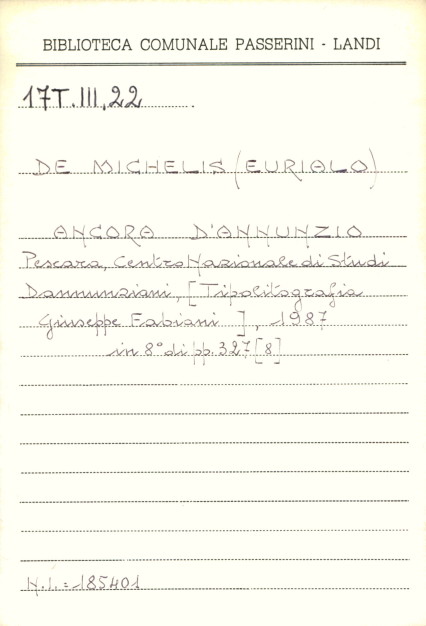 BIBLIOTECA COMUNALE PASSERINI - LANDI
17T.III.22
DE MICHELIS (EURIALO)
ANCORA D'ANNUNZIO
Pescara, Centro Nazionale di Studi
Dannunziani, [Tipolitografia
Giuseppe Fabiani], 1987
in 8° di pp. 327 [8]
N.I. = 185401